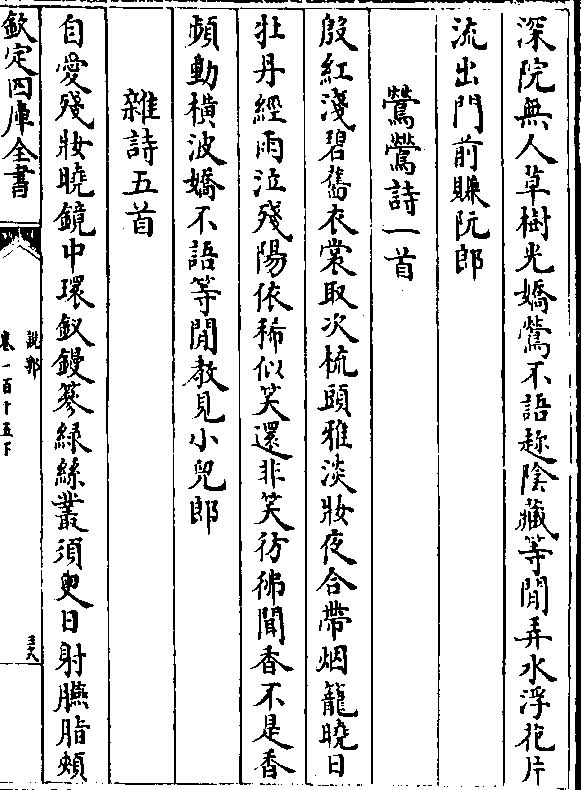 深院無人草樹光嬌鶯不語趂隂藏等閒弄水浮花片
流出門前賺阮郎
鶯鶯詩一首
殷紅淺碧舊衣裳取次梳頭雅淡妝夜合帶烟籠曉日
牡丹經雨泣殘陽依稀似笑還非笑彷彿聞香不是香
頻動横波嬌不語等閒教見小兒郎
雜詩五首
自愛殘妝曉鏡中環釵鏝篸緑絲叢須臾日射臙脂頰
欽定四庫全書
說郛
卷一百十五下